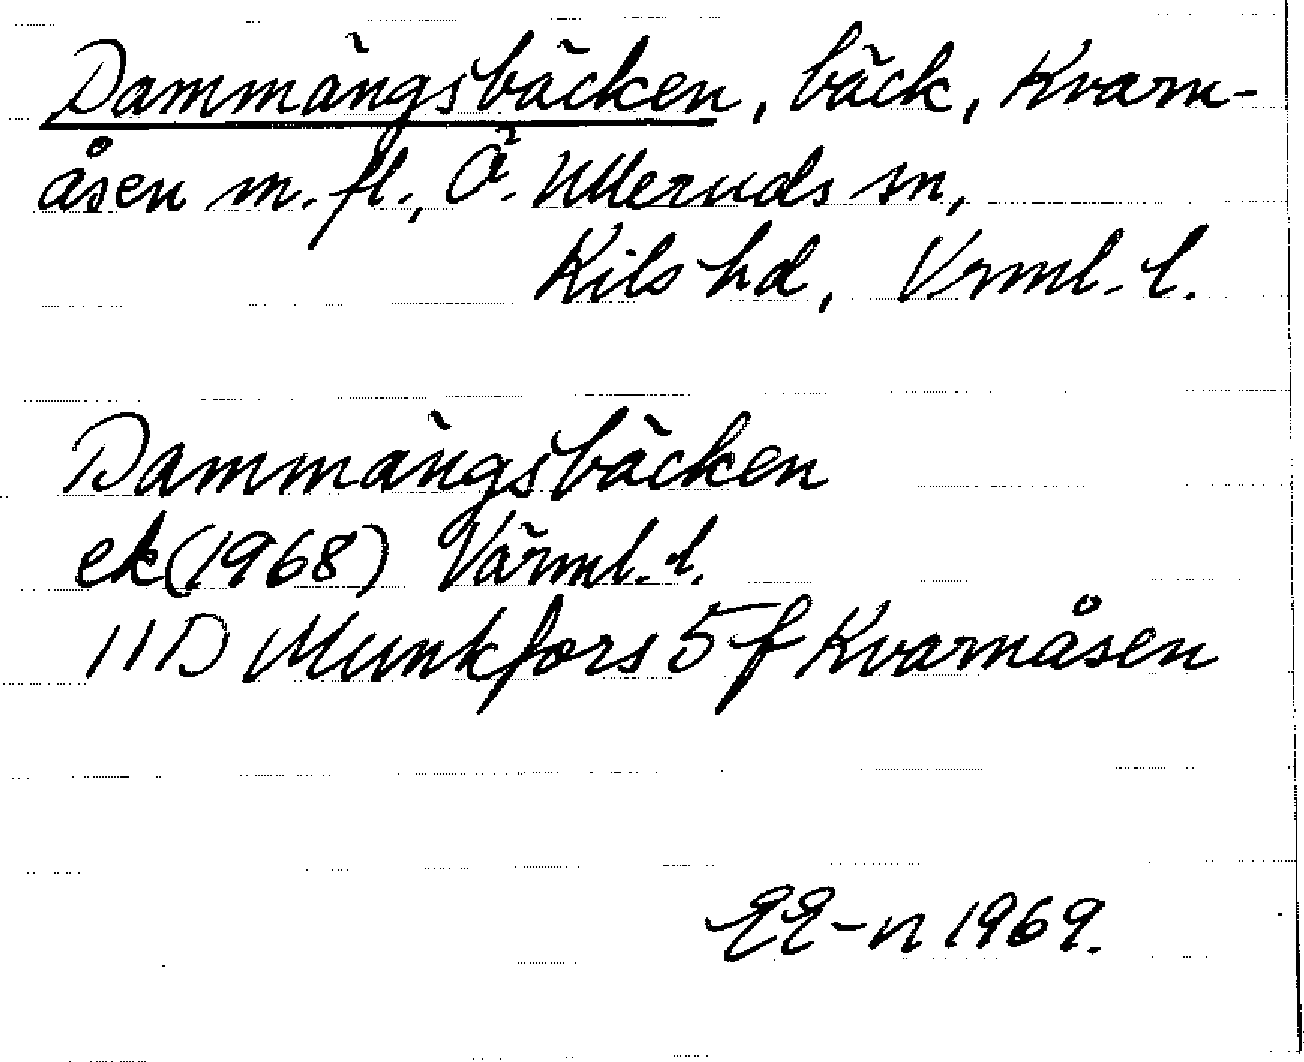 Dammängsbäcken, bäck, Kvarn-
åsen m. fl., Ö. Ulleruds sn,
Kils hd, Vrml. l.
Dammängsbäcken
ek (1968) Värml. l.
11D Munkfors 5 f Kvarnåsen
EE-n 1969.